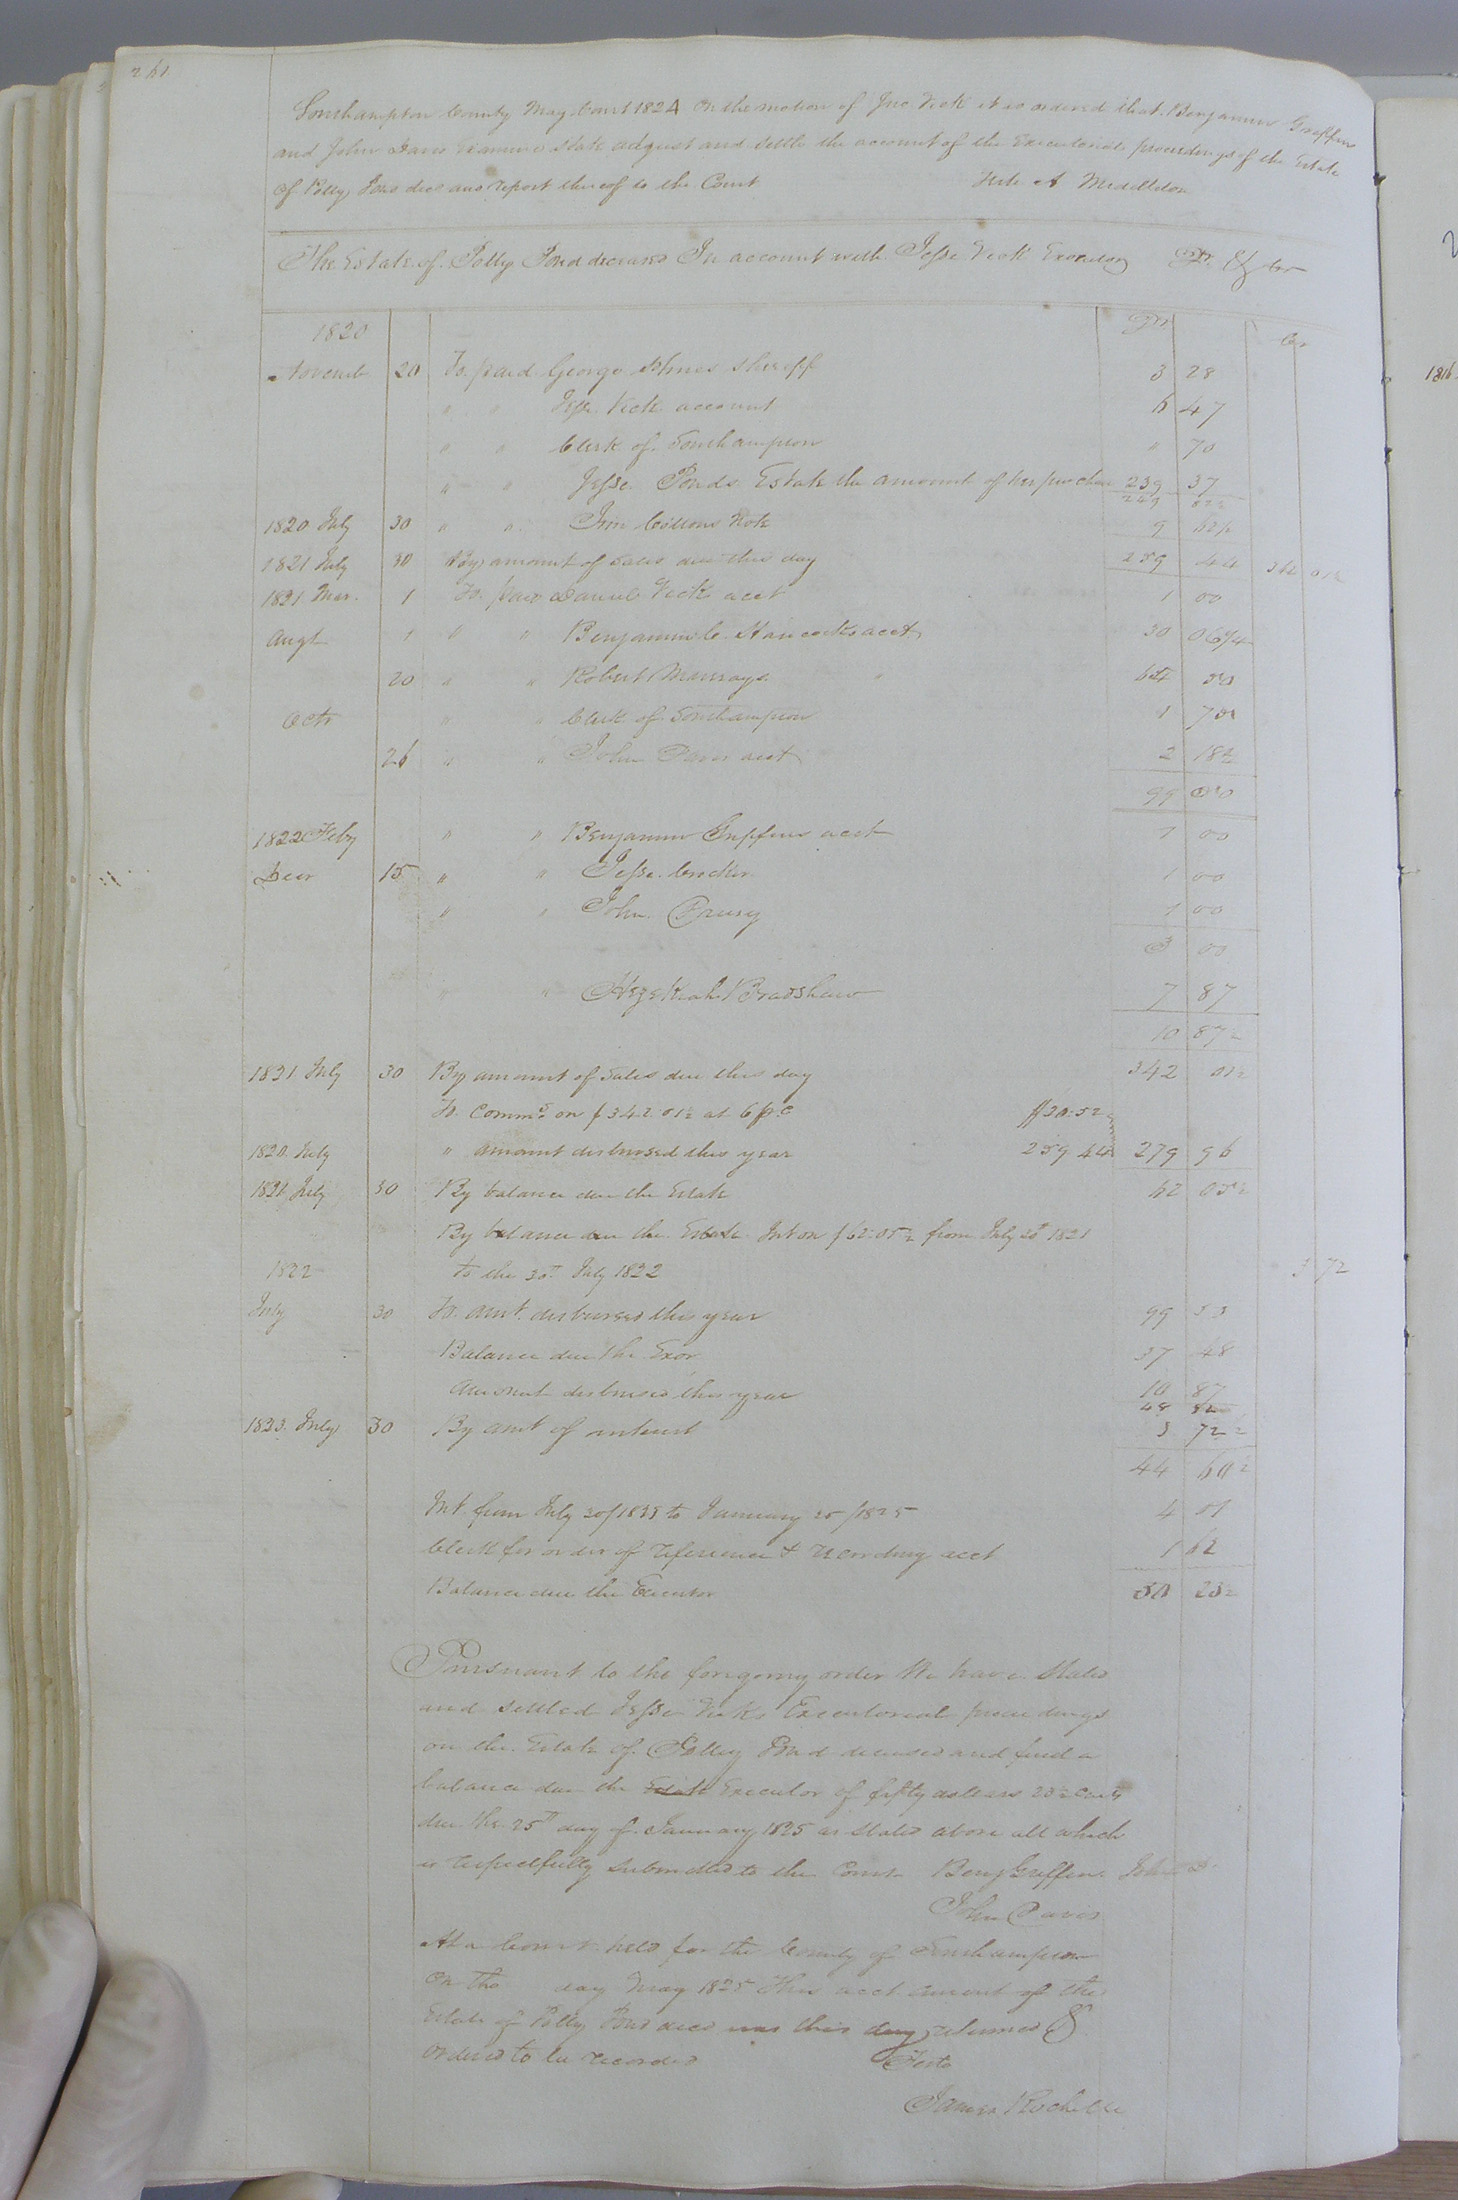 261
Southampton County May Court 1824 On the motion of Jno Vick it is ordered that Benjamin Griffin
and John Davis Examine State adjust and settle the account of the Executorial proceedings of the Estate
of Polly Pond decd and report thereof to the Court Teste A Middleton
The Estate of Polly Pond deceased In account with Jesse Vick Executor Dr &
1820 Dr Cr
Novemb 20 To paid George sheriff 3 28
" " Jesse Vick account 6 47
" " Clerk of Southampton " 70
" " Jesse Ponds Estate the amount of her purchase 239 37
249 82½
1820 July 30 " " Note 9 62½
1821 July 30 By amount of Sales due this day 259 44 342 01½
1821 Mar. 1 To paid Daniel Vicks acct 1 00
Augt 1 " " Benjamin C. Hancocks acct 30 06¼
20 " " Robert Murrays " 64
Octr " " Clerk of Southampton 1 75
26 " " John Davis acct 2 18½
99
1822 Feby " " Benjamin Griffins acct 1 00
Decr 15 " " Jesse 1 00
" " John Drury 1 00
3 00
" " Hezekiah Bradshaw 7 87
10 87½
1821 July 30 By amount of Sales due this day 342 01½
To Comms. on $342.01½ at 6 p.C $20.52
1820 July " amount disbursed this year 259 44 279 96
1821 July 30 By balance due the Estate 62 05½
By balance due the Estate Int on $62.05½ from July 30th 1821
1822 to the 30th July 1822 3 72
July 30 To amt. disbursed this year 99 53
Balance due the Exor 37 48
Amount disbursed this year 10 87
48
1823 July 30 By amt of interest 3 72½
44 60½
Int. from July 30/1823 to January 25/1825 4 01
Clerk for order of reference & recording acct 1 62
Balance due the Executor 50 23½
Pursuant to the foregoing order We have Stated
and settled Jesse Vicks Executorial proceedings
on the Estate of Polly Pond deceased and find a
balance due the Estate Executor of fifty dollars 23½ Cents
due the 25th day of January 1825 as stated above all which
is respectfully submitted to the Court Benj Griffin John D
John Davis
At a Court held for the County of Southampton
On the day May 1825 This acct current of the
Estate of Polly Pond decd was this day returned &
Ordered to be recorded Teste
James Rochelle
1816